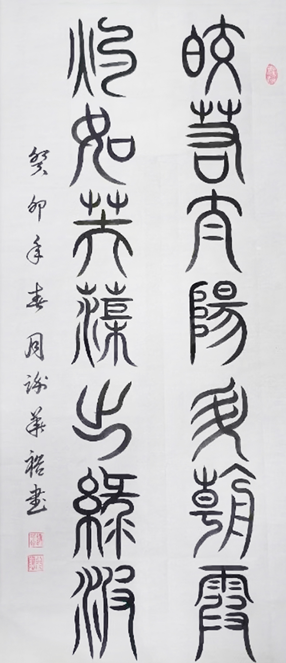 皎若太陽升朝霞
灼如芙蕖出綠波
癸卯年春月謝華裕書